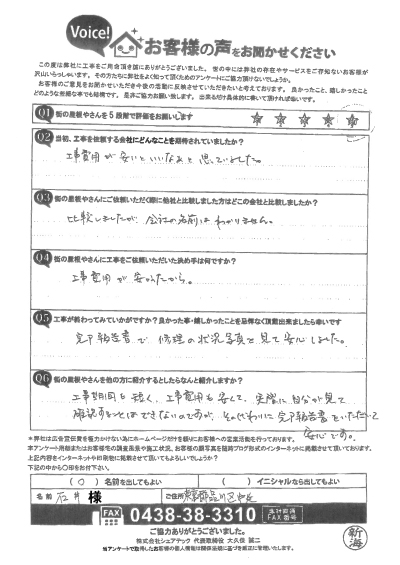 Voice!
お客様の声をお聞かせください
この度は弊社に工事をご用命頂き誠にありがとうございました。世の中には弊社の存在やサービスをご存知ないお客様が
沢山いらっしゃいます。その方たちに弊社をよく知って頂くためのアンケートにご協力頂けないでしょうか。
お客様のご意見をお聞かせいただき今後の活動に反映させていただきたいと考えております。良かったこと、嬉しかったこと
どのような些細な事でも結構です。是非ご協力お願い致します。出来るだけ具体的に書いて頂ければ幸いです。
Q1 街の屋根やさんを5段階で評価をお願いします ☆ ☆ ☆ ☆ ☆
Q2 当初、工事を依頼する会社にどんなことを期待されていましたか?
工事費用が安いといいなぁと思っていました。
Q3 街の屋根やさんにご依頼いただく際に他社と比較しました方はどこの会社と比較しましたか?
比較しましたが、会社の名前はわかりません。
Q4 街の屋根やさんに工事をご依頼いただいた決め手は何ですか?
工事費用が安かったから。
Q5 工事が終わってみていかがですか?良かった事・嬉しかったことを忌憚なく頂戴出来ましたら幸いです
完了報告書で修理の状況写真を見て安心しました。
Q6 街の屋根やさんを他の方に紹介するとしたらなんと紹介しますか?
工事期間も短く、工事費用も安くて、実際に自分が見て
確認することはできないのですが、その代わりに完了報告書をいただいて
安心です。
*弊社は広告宣伝費を極力かけない為にホームページだけを頼りにお客様への営業活動を行っております。
*本アンケート用紙またはお客様宅の調査風景や施工状況、お客様の顔写真を随時ブログ形式のインターネットに掲載させて頂いております。
上記内容をインターネットや印刷物に掲載させて頂いてもよろしいでしょうか?
下記の中から○印をお付下さい。
( ○ ) 名前を出してもよい ( ) イニシャルなら出してもよい
名前 石井 様 ご住所 東京都品川区
FAX 0438-38-3310 全社共通 FAX番号
ご協力ありがとうございました。
株式会社シェアテック 代表取締役 大久保 誠二
当アンケートで取得したお客様の個人情報は関係法規に基づき厳正に管理いたします。
新海